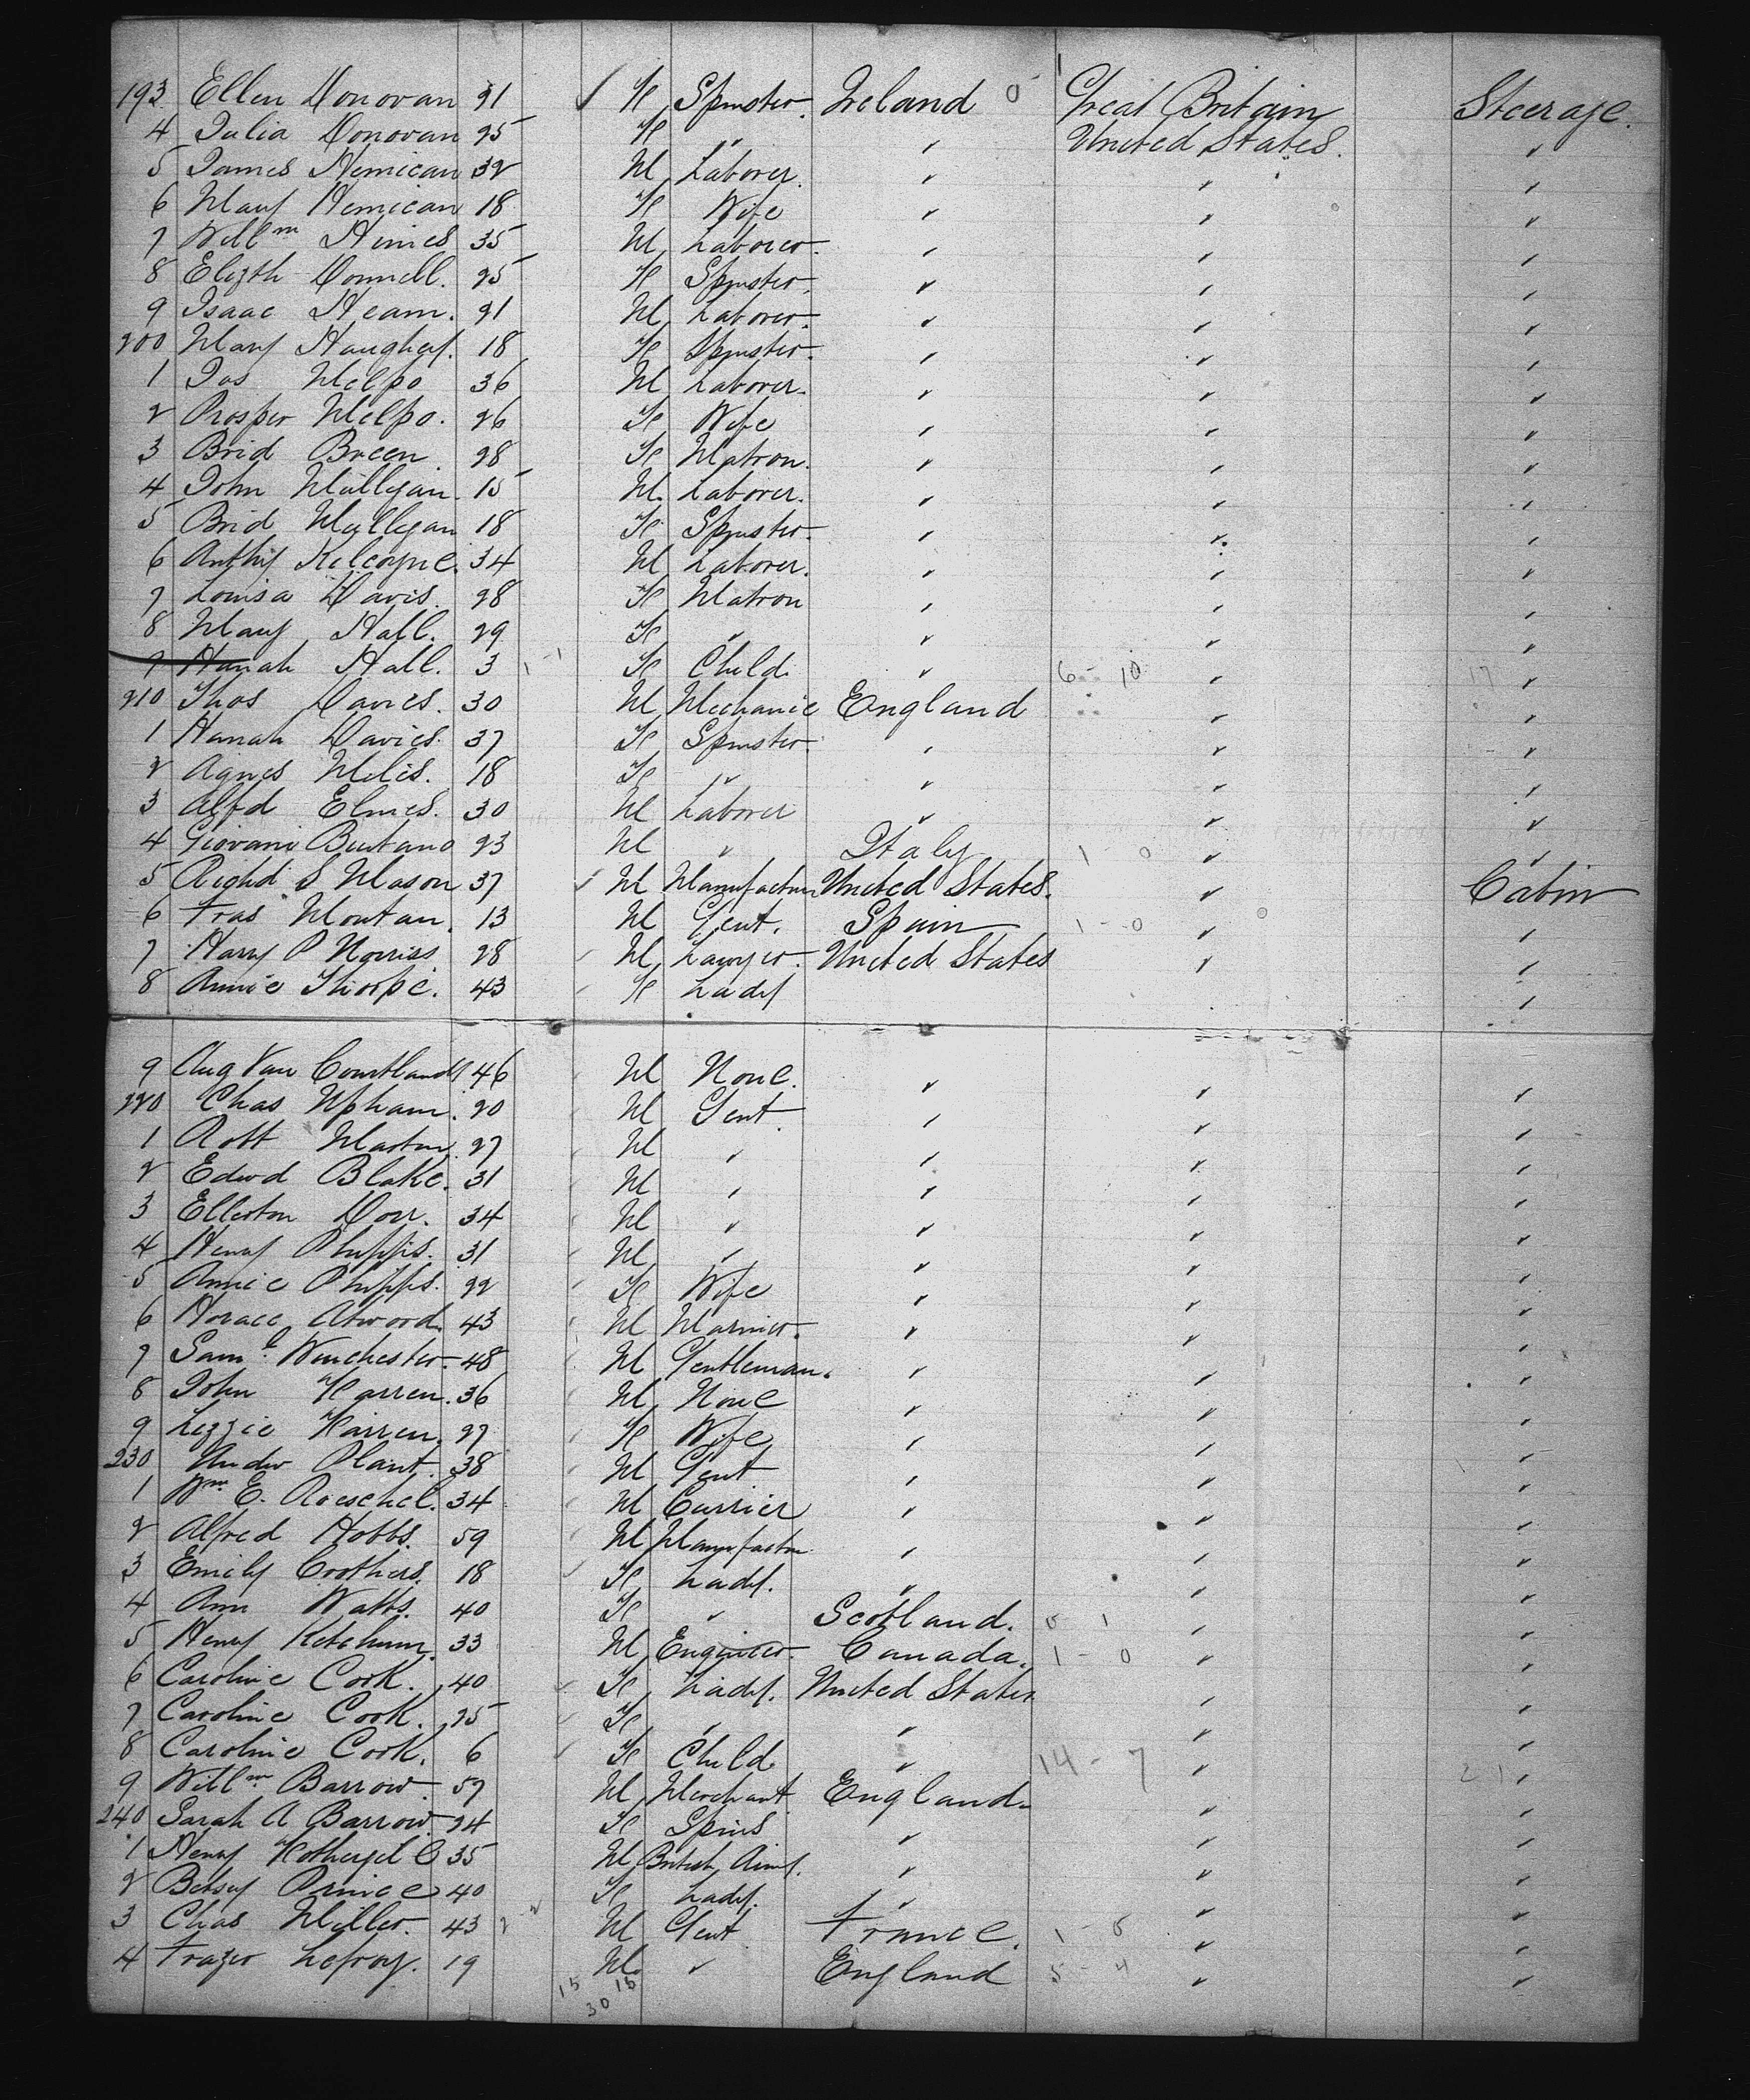 193 Ellen Donovan 21 ✓ F Spinster. Ireland 0 1 Great Britain Steerage.
4 Julia Donovan 25 F " ✓ United States. ✓
5 James Hemican 32 M Laborer. ✓ ✓ ✓
6 Mary Hemican 18 F Wife ✓ ✓ ✓
7 Willm Hines 35 M Laborer. ✓ ✓ ✓
8 Elizth Donnell. 25 F Spinster. ✓ ✓ ✓
9 Isaac Heam. 21 M Laborer. ✓ ✓ ✓
200 Mary Haughey. 18 F Spinster. ✓ ✓ ✓
1 Jos Melpo 36 M Laborer. ✓ ✓ ✓
2 Prosper Melpo. 26 F Wife ✓ ✓ ✓
3 Brid Breen 28 F Matron. ✓ ✓ ✓
4 John Mulligan. 15 M. Laborer. ✓ ✓ ✓
5 Brid Mulligan 18 F Spinster. ✓ ✓ ✓
6 Anthy Kilcoyne. 34 M Laborer. ✓ ✓ ✓
7 Louisa Davis. 28 F Matron ✓ ✓ ✓
8 Mary Hall. 29 F " ✓ ✓ ✓
9 Hanah Hall. 3 1-1 F Child. ✓ 6-10 ✓ 17 ✓
210 Thos Davies. 30 M Mechanic England ✓ ✓
1 Hanah Davies. 37 F Spinster. ✓ ✓ ✓
2 Agnes Miles. 18 F " ✓ ✓ ✓
3 Alfd Elmes. 30 M Laborer ✓ ✓ ✓
4 Giovani 23 M " Italy 1 0 ✓ ✓
5 Richd S Mason 37 ✓ M Manufacturer United States. ✓ Cabin
6 Fras Montan. 13 M Gent. Spain 1-0 ✓ ✓
7 Harry P Norriss 28 M Lawyer. United States ✓ ✓
8 Annie Thorpe. 43 F Lady ✓
9 Aug Van Courtlandt 46 M None. ✓ ✓ ✓
220 Chas Upham. 20 M Gent. ✓ ✓ ✓
1 Robt Martin. 27 M " ✓ ✓ ✓
2 Edwd Blake. 31 M " ✓ ✓ ✓
3 Ellerton Dorr. 34 M " ✓ ✓ ✓
4 Henry Phipps. 31 M " ✓ ✓ ✓
5 Annie Phipps. 22 F Wife ✓ ✓ ✓
6 Horace Atwood. 43 M Mariner. ✓ ✓ ✓
7 Saml. Winchester. 48 M Gentleman. ✓ ✓ ✓
8 John Farren. 36 M None ✓ ✓ ✓
9 Lizzie Farren. 27 F Wife ✓ ✓ ✓
230 Andw Plant. 38 M Gent ✓ ✓ ✓
1 Wm. E. Roeschel. 34 M Currier ✓ ✓ ✓
2 Alfred Hobbs. 59 M Manufactur ✓ ✓ ✓
3 Emily Crothers. 18 F Lady. ✓ ✓ ✓
4 Ann Watts. 40 F " Scotland. 0 1 ✓ ✓
5 Henry Ketchum. 33 M Engineer. Canada. 1-0 ✓ ✓
6 Caroline Cook. 40 F Lady. United States ✓ ✓
7 Caroline Cook. 25 F " ✓ ✓ ✓
8 Caroline Cook. 6 F Child ✓ 14-7 ✓ 21 ✓
9 Willm. Barrow. 57 M Merchant England. ✓ ✓
240 Sarah A Barrow. 24 F Spins ✓ ✓ ✓
1 Henry 35 M British Army. ✓ ✓ ✓
2 Betsey Prince 40 F Lady. ✓ ✓ ✓
3 Chas Miller. 43 2-2 M Gent France. 1-0 ✓ ✓
4 Frazer Lefroy. 19 M. ✓ England 5-4 ✓ ✓
15 15
30